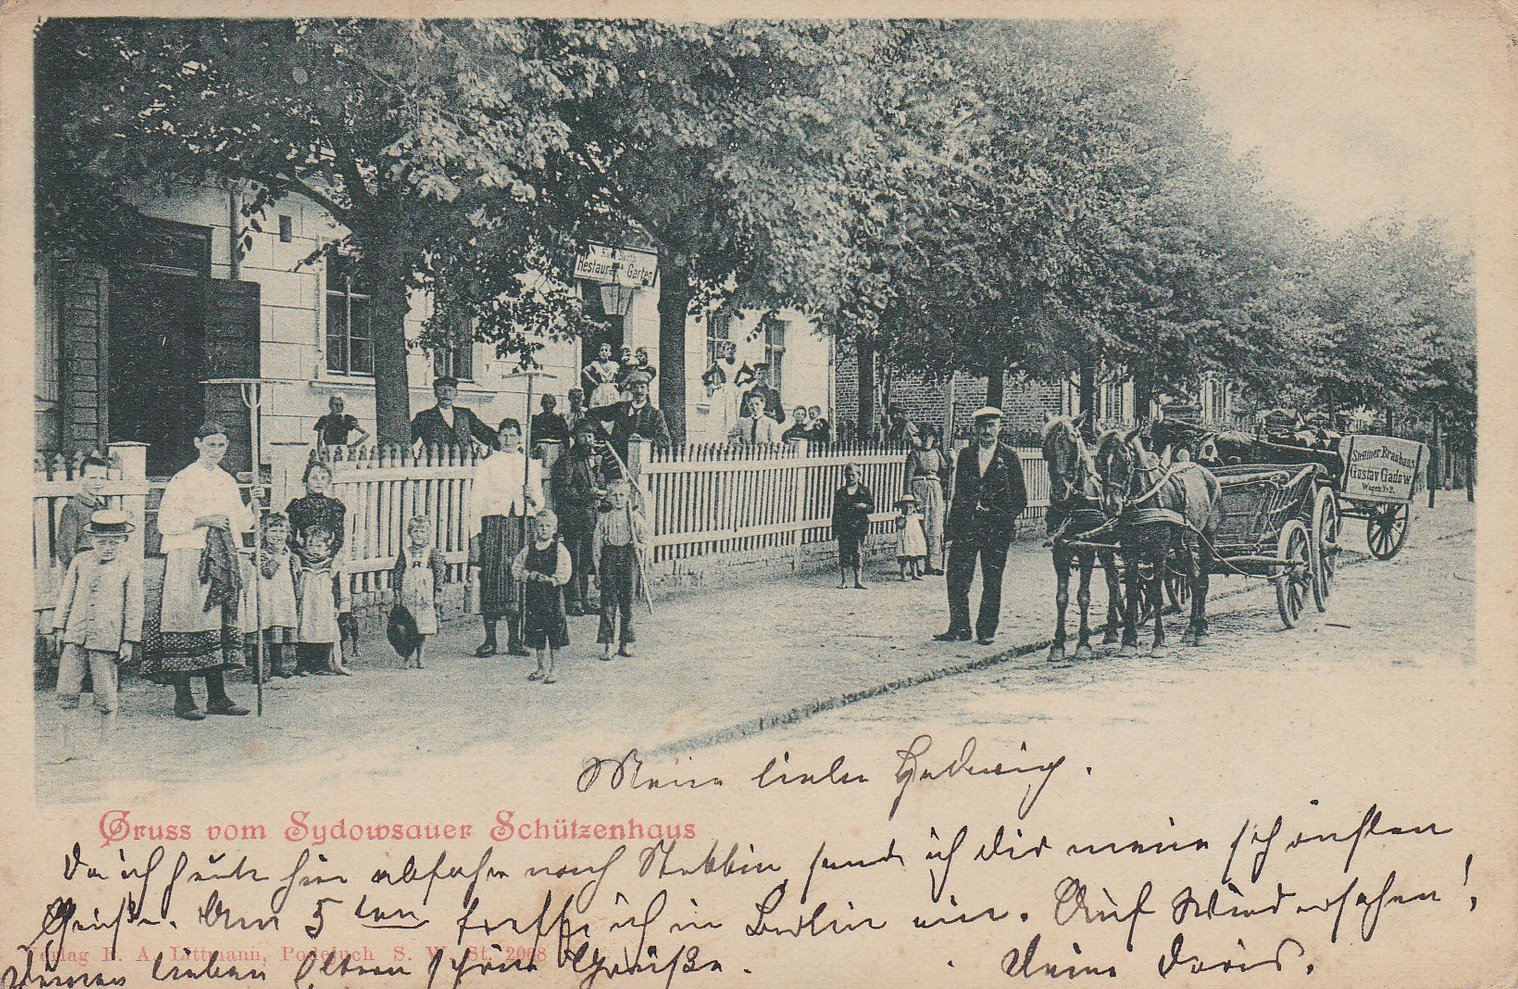 Restaurant Garten
Stettiner Brauhaus
Gustav Gadow
Wagen No 2.
Meine liebe Hedwig.
Gruss vom Sydowsauer Schützenhaus
Da ich heute hier abfahre nach Stettin, sende ich Dir meine schönsten
Grüße. Am 5ten treffe ich in Berlin ein. Auf Wiedersehen!
Verlag F. A. Littmann, Podejuch S. W. St. 2068
Deinen lieben Eltern schöne Grüße. Deine Doris.